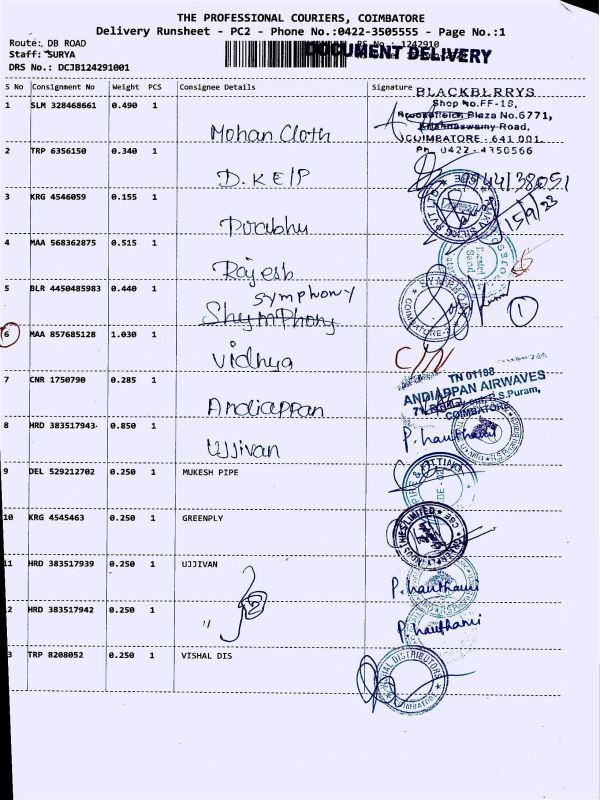 THE PROFESSIONAL COURIERS, COIMBATORE
Delivery Runsheet - PC2 - Phone No.:0422-3505555 - Page No.:1
Route: DB ROAD
Staff: SURYA
DRS No.: DCJB124291001
DOCUMENT DELIVERY
S No Consignment No Weight PCS Consignee Details Signature
BLACKBLRRYS
Shop No.FF-18,
Plaza No.6771,
Krishnaswamy Road,
COIMBATORE - 641 001.
Ph. 0422 - 4350566
1 SLM 328468661 0.490 1 Mohan Cloth
2 TRP 6356150 0.340 1 D.K E/P
3 KRG 4546059 0.155 1 Prabhu 15/9/23
4 MAA 568362875 0.515 1 Rajesh
5 BLR 4450485983 0.440 1 Symphony
Shymphony
SYMPHONY COIMBATORE-2
1
6 MAA 857685128 1.030 1 Vidhya C/N
7 CNR 1750790 0.285 1 Andiappan
TN 01188
ANDIAPPAN AIRWAVES
R.S.Puram,
COIMBATORE
8 HRD 383517943 0.850 1 Ujjivan P. hauthami
9 DEL 529212702 0.250 1 MUKESH PIPE
10 KRG 4545463 0.250 1 GREENPLY
11 HRD 383517939 0.250 1 UJJIVAN P. hauthami
12 HRD 383517942 0.250 1 " P. hauthami
3 TRP 8208052 0.250 1 VISHAL DIS
VISHAL DISTRIBUTORS COIMBATORE